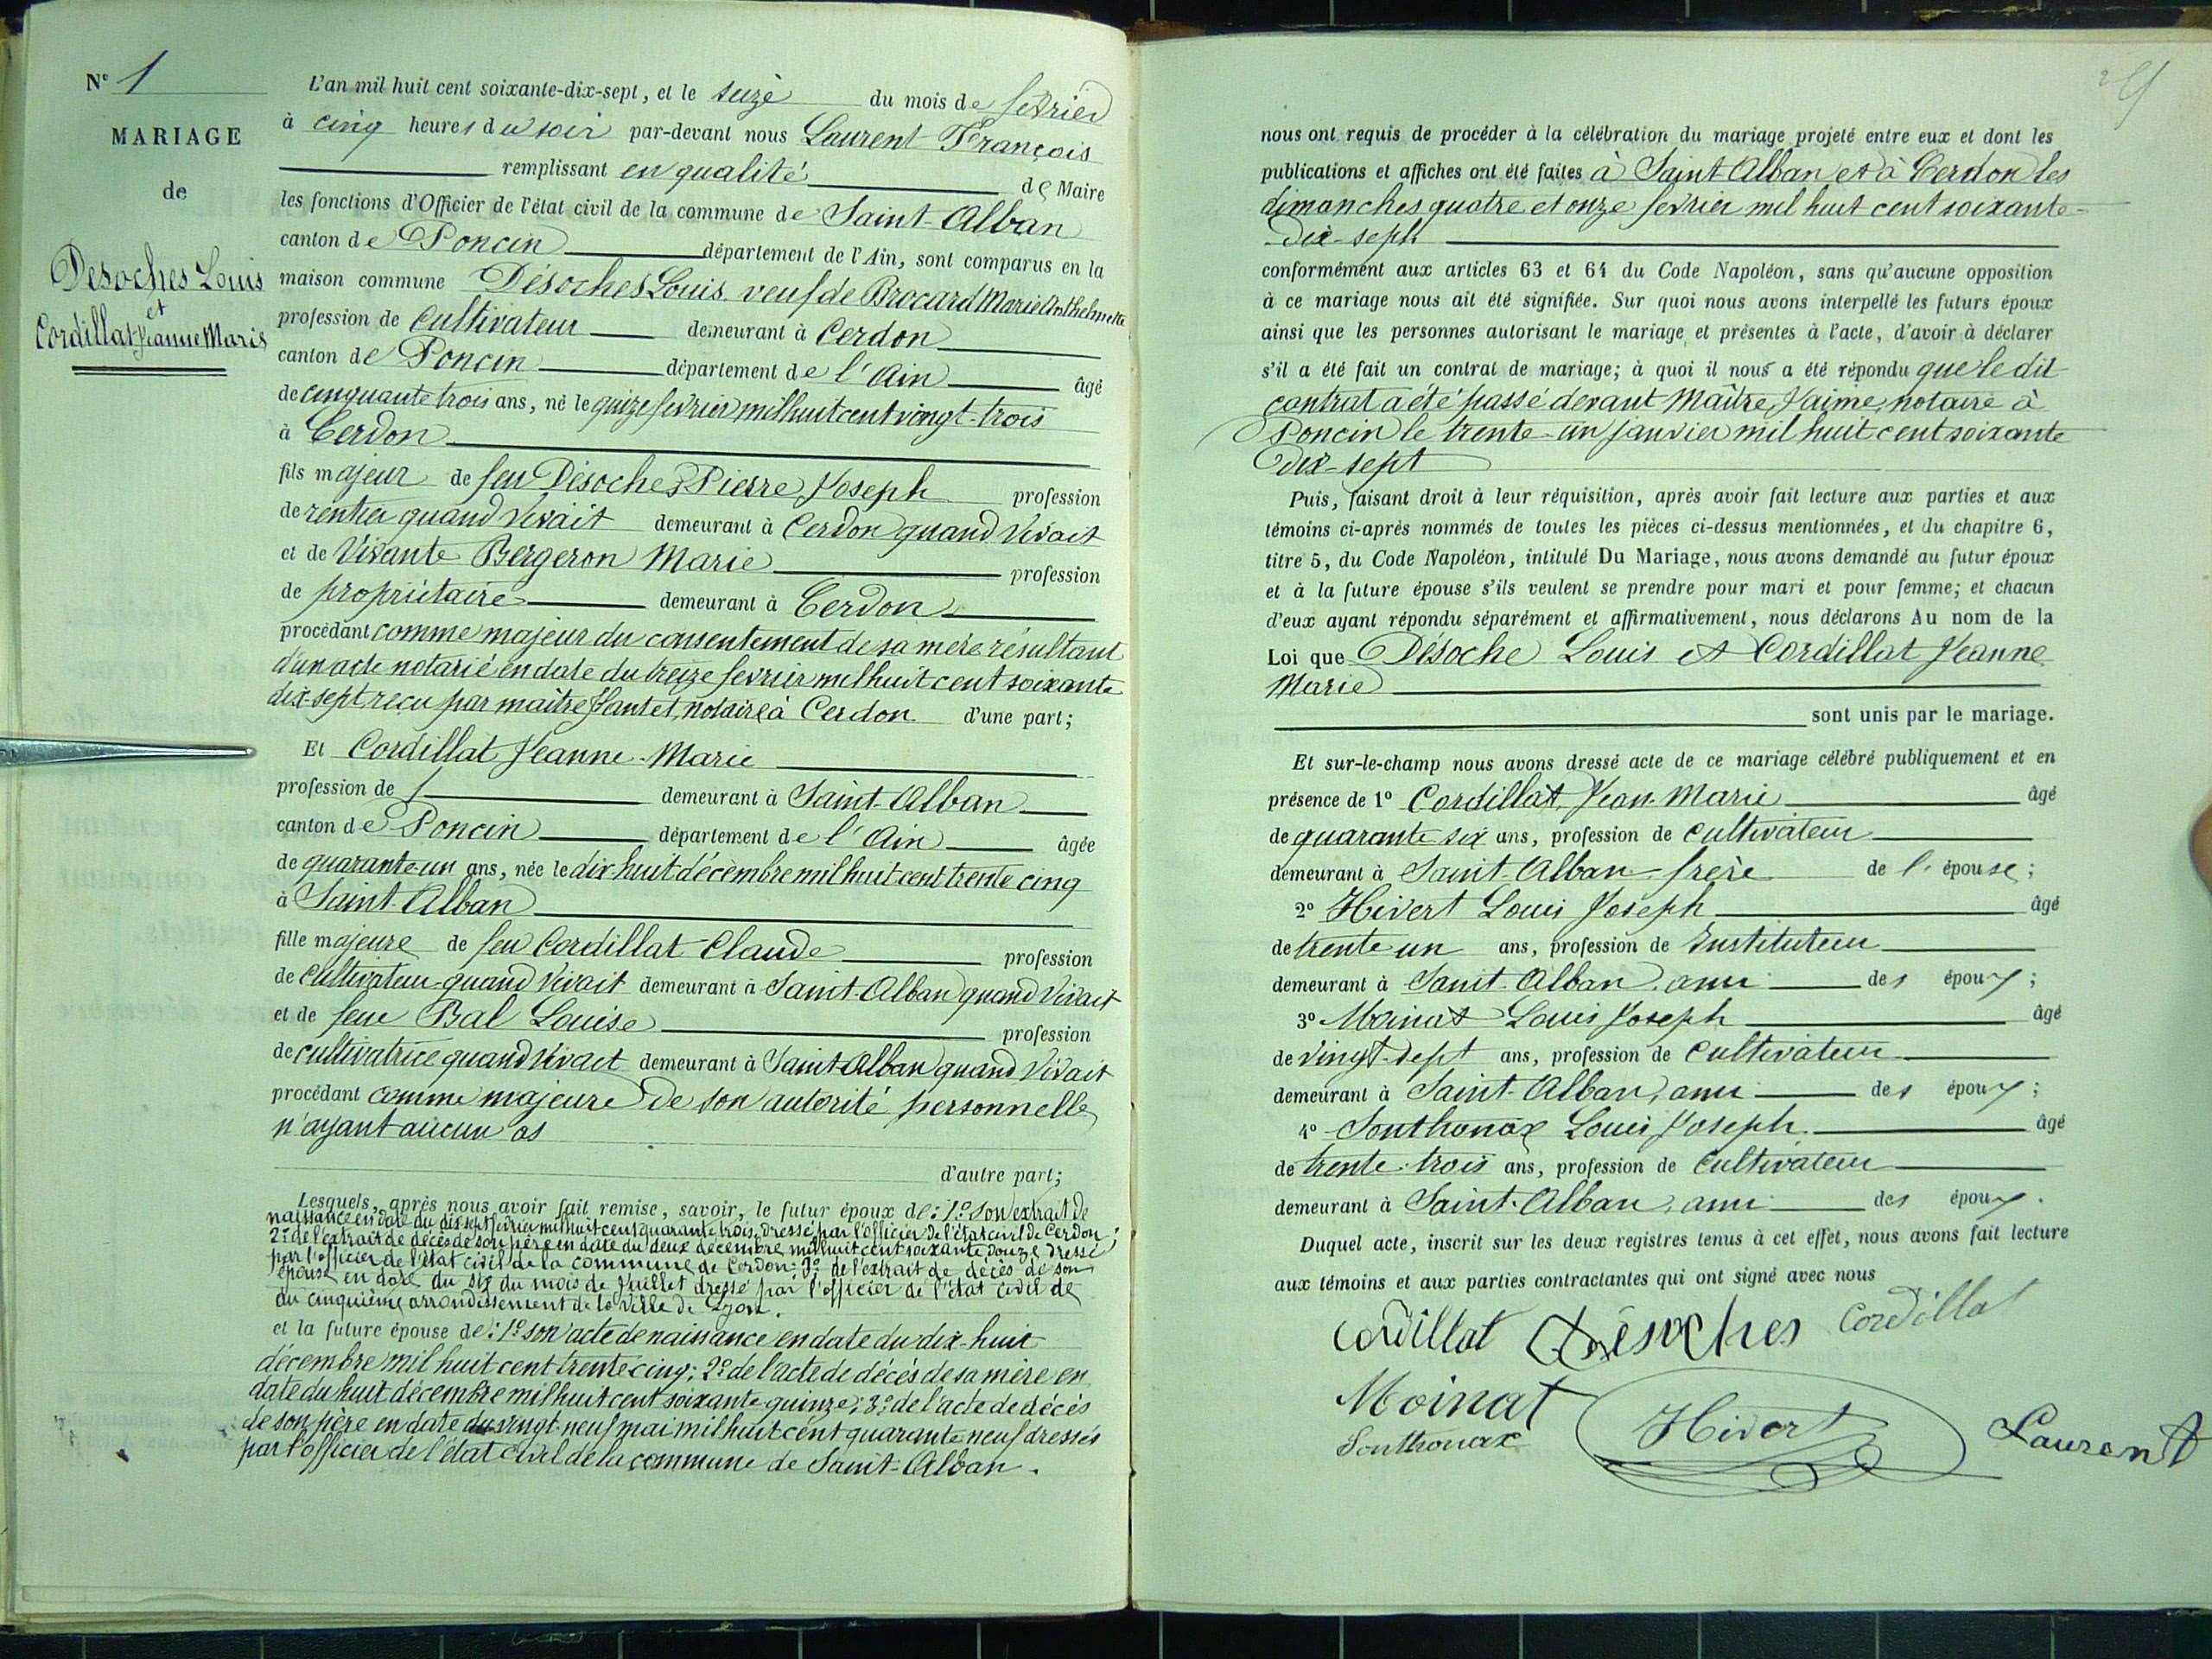 N° 1
MARIAGE
de
Desoches Louis
et
Cordillat Jeanne Marie
L'an mil huit cent soixante-dix-sept, et le seize du mois de février
à cinq heures du soir par-devant nous Laurent François
remplissant en qualité de Maire
les fonctions d'Officier de l'état civil de la commune de Saint-Alban
canton de Poncin département de l'Ain, sont comparus en la
maison commune Désoches Louis veuf de Brocard Marie Anthelmette
profession de Cultivateur demeurant à Cerdon
canton de Poncin département de l'Ain âgé
de cinquante trois ans, né le quize fevrier mil huit cent vingt-trois
à Cerdon
fils majeur de feu Désoches Pierre Joseph profession
de rentier quand vivait demeurant à Cerdon quand vivait
et de Vivante Bergeron Marie profession
de propriétaire demeurant à Cerdon
procédant comme majeur du consentement de sa mère résultant
d'un acte notarié en date du treize fevrier mil huit cent soixante
dix-sept reçu par maître Jantet, notaire à Cerdon d'une part;
Et Cordillat Jeanne-Marie
profession de demeurant à Saint-Alban
canton de Poncin département de l'Ain âgée
de quarante-un ans, née le dix-huit décembre mil huit cent trente cinq
à Saint-Alban
fille majeure de feu Cordillat Claude profession
de Cultivateur quand vivait demeurant à Saint-Alban quand vivait
et de feue Bal Louise profession
de cultivatrice quand vivait demeurant à Saint-Alban quand vivait
procédant comme majeure de son autorité personnelle
n'ayant aucun as
d'autre part;
Lesquels, après nous avoir fait remise, savoir, le futur époux de: 1° Son extrait de
naissance en date du dix sept fevrier mil huit cent quarante trois, dressé par l'officier de l'état civil de Cerdon;
2° de l'extrait de décès de son père en date du deux décembre mil huit cent soixante douze dressé
par l'officier de l'état civil de la commune de Cerdon: 3° de l'extrait de décès de son
épouse en date du six du mois de Juillet dressé par l'officier de l'état civil de
du cinquième arrondissement de la Ville de Lyon.
et la future épouse de: 1° son acte de naissance en date du dix-huit
décembre mil huit cent trente cinq; 2° de l'acte de décès de sa mère en
date du huit décembre mil huit cent soixante quinze; 3° de l'acte de décès
de son père en date du vingt-neuf mai mil huit cent quarante neuf dressés
par l'officier de l'état civil de la commune de Saint-Alban.
nous ont requis de procéder à la célébration du mariage projeté entre eux et dont les
publications et affiches ont été faites à Saint Alban et à Cerdon les
dimanches quatre et onze fevrier mil huit cent soixante-
dix-sept
conformément aux articles 63 et 64 du Code Napoléon, sans qu'aucune opposition
à ce mariage nous ait été signifiée. Sur quoi nous avons interpellé les futurs époux
ainsi que les personnes autorisant le mariage et présentes à l'acte, d'avoir à déclarer
s'il a été fait un contrat de mariage; à quoi il nous a été répondu que le dit
contrat a été passé devant Maître Jaime, notaire à
Poncin le trente-un janvier mil huit cent soixante
dix-sept
Puis, faisant droit à leur réquisition, après avoir fait lecture aux parties et aux
témoins ci-après nommés de toutes les pièces ci-dessus mentionnées, et du chapitre 6,
titre 5, du Code Napoléon, intitulé Du Mariage, nous avons demandé au futur époux
et à la future épouse s'ils veulent se prendre pour mari et pour femme; et chacun
d'eux ayant répondu séparément et affirmativement, nous déclarons Au nom de la
Loi que Désoche Louis et Cordillat Jeanne
Marie
sont unis par le mariage.
Et sur-le-champ nous avons dressé acte de ce mariage célébré publiquement et en
présence de 1° Cordillat, Jean-Marie âgé
de quarante six ans, profession de Cultivateur
demeurant à Saint-Alban frère de l'épouse;
2° Hivert Louis Joseph âgé
de trente un ans, profession de Instituteur
demeurant à Saint-Alban, ami des époux;
3° Moinat Louis Joseph âgé
de vingt-sept ans, profession de Cultivateur
demeurant à Saint-Alban, ami des époux;
4° Sonthonax Louis Joseph. âgé
de trente-trois ans, profession de Cultivateur
demeurant à Saint-Alban, ami des époux.
Duquel acte, inscrit sur les deux registres tenus à cet effet, nous avons fait lecture
aux témoins et aux parties contractantes qui ont signé avec nous
Cordillat Désoches Cordillat
Moinat Hivert Laurent
Sonthonax